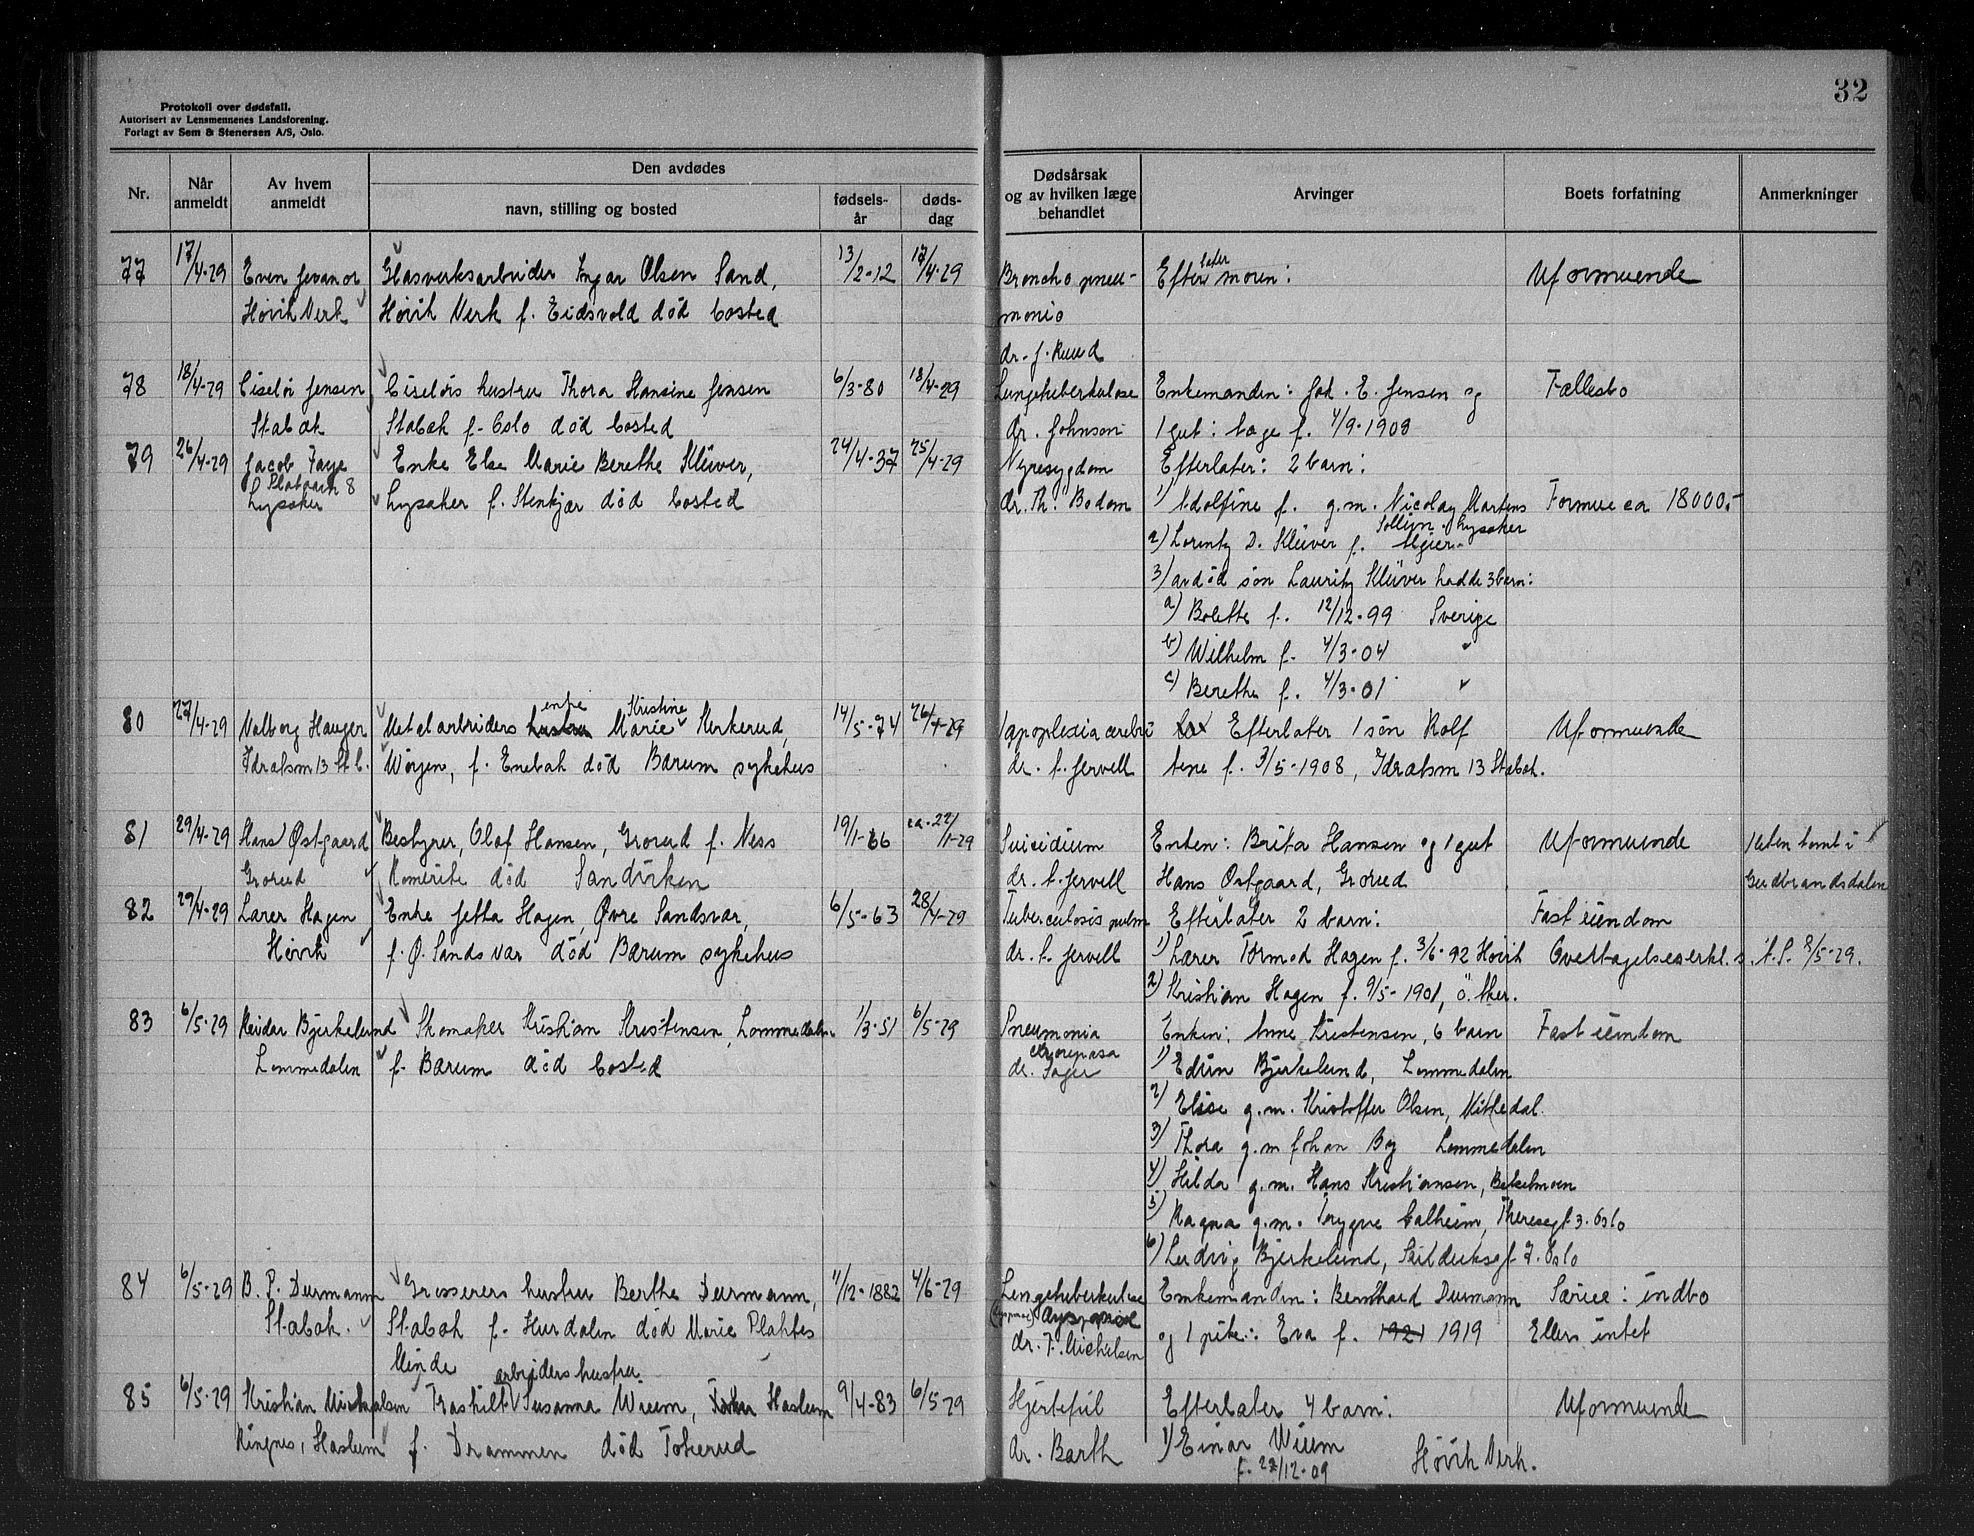 32
Protokoll over dødsfall.
Autorisert av Lensmennenes Landsforening.
Forlagt av Sem & Stenersen A/S, Oslo.
Nr.
Når anmeldt
Av hvem anmeldt
Den avdødes
navn, stilling og bosted
fødsels-år
døds-dag
Dødsårsak og av hvilken læge behandlet
Arvinger
Boets forfatning
Anmerkninger
77 17/4-29 Even Jevanor Glasverksarbeider Ingar Olsen Sand, 13/2-12 17/4-29 Broncho pneu- Efterlater moren: Uformuende
Høvik Verk Høvik Verk f. Eidsvold død bosted monio
dr. J. Ruud
78 18/4-29 Ciselør Jensen Ciselørs hustru Thora Hansine Jensen 6/3-80 18/4-29 Lungetuberkulose Enkemanden: Joh. E. Jensen og Fællesbo
Stabæk Stabæk f. Oslo død bosted dr. Johnson 1 gut: Aage f. 4/9-1908
79 26/4-29 Jacob Faye Enke Else Marie Berethe Klüver, 24/4-37 25/4-29 Nyresygdom Efterlater: 2 barn:
Lysaker Lysaker f. Stenkjær død bosted dr. Th. Bodom 1) Adolfine f. g.m. Nicolay Martens Formue ca 18000.-
Sollien. Lysaker
2) Lorentz D. Klüver f. Algier.
3) avdød søn Lauritz Klüver hadde 3 barn:
a) Bolette f. 12/12-99 Sverige
b) Wilhelm f. 4/3-04 "
c) Berethe f. 4/3-01 "
80 27/4-29 Valborg Hauger Metalarbeiders hustru enke Marie Kristine Kirkerud, 14/5-74 26/4-29 Apoplexia cerebri Efterlater 1 søn Rolf Uformuende
Idratsm 13 Stb. Worjen, f. Enebak død Bærum sykehus dr. A. Jervell Arne f. 3/5-1908, Idratsm 13 Stabæk.
81 29/4-29 Hans Østgaard Bestyrer, Olaf Hansen, Grorud f. Ness 19/1-66 ca. 22/1-29 Suicidium Enken: Brita Hansen og 1 gut Uformuende Liten tomt i
Grorud Romerike død Sandviken dr. A. Jervell Hans Østgaard, Grorud Gudbrandsdalen
82 29/4-29 Lærer Hagen Enke Jetta Hagen, Øvre Sandsvær, 6/5-63 28/4-29 Tuberculosis pulm Efterlater 2 barn: Fast eiendom
Høvik f. Ø. Sandsvær død Bærum sykehus dr. A. Jervell 1) Lærer Tormod Hagen f. 3/6-92 Høvik Overtagelseserkl. s. A.S. 8/5-29.
2) Kristian Hagen f. 9/5-1901, Ö. Aker.
83 6/5-29 Reidar Bjerkelund Skomaker Kristian Kristensen, Lommedalen 1/3-51 6/5-29 Pneumonia Enken: Anne Kristensen, 6 barn Fast eiendom
Lommedalen f. Bærum død bosted crouposa 1) Edvin Bjerkelund, Lommedalen
dr. Sager
2) Elise g.m. Kristoffer Olsen, Nittedal.
3) Thora g.m Johan By Lommedalen
4) Hilda g.m. Hans Kristiansen, Bekelmoen
5) Ragna g.m. Trygve Calheim, Theresegt 3. Oslo
6) Ludvig Bjerkelund, 7. Oslo
84 6/5-29 B. P. Durmann Grosserers hustru Berthe Durmann, 11/12-1882 4/6-29 Lungetuberkulose Enkemanden: Bernhard Durmann Særeie: indbo
Stabæk. Stabæk f. Hurdalen død Marie Plahtes dr. F. Michelsen og 1 pike: Eva f. 1921 1919 Ellers intet
Minde
85 6/5-29 Kristian Michaelsen Traghilt Susanna Wium, arbeiders hustru Haslum 9/4-83 6/5-29 Hjertefeil Efterlater 4 barn: Uformuende
Ringnes, Haslum f. Drammen død Tokerud dr. Barth 1) Einar Wium Høvik Verk.
f. 22/12-09